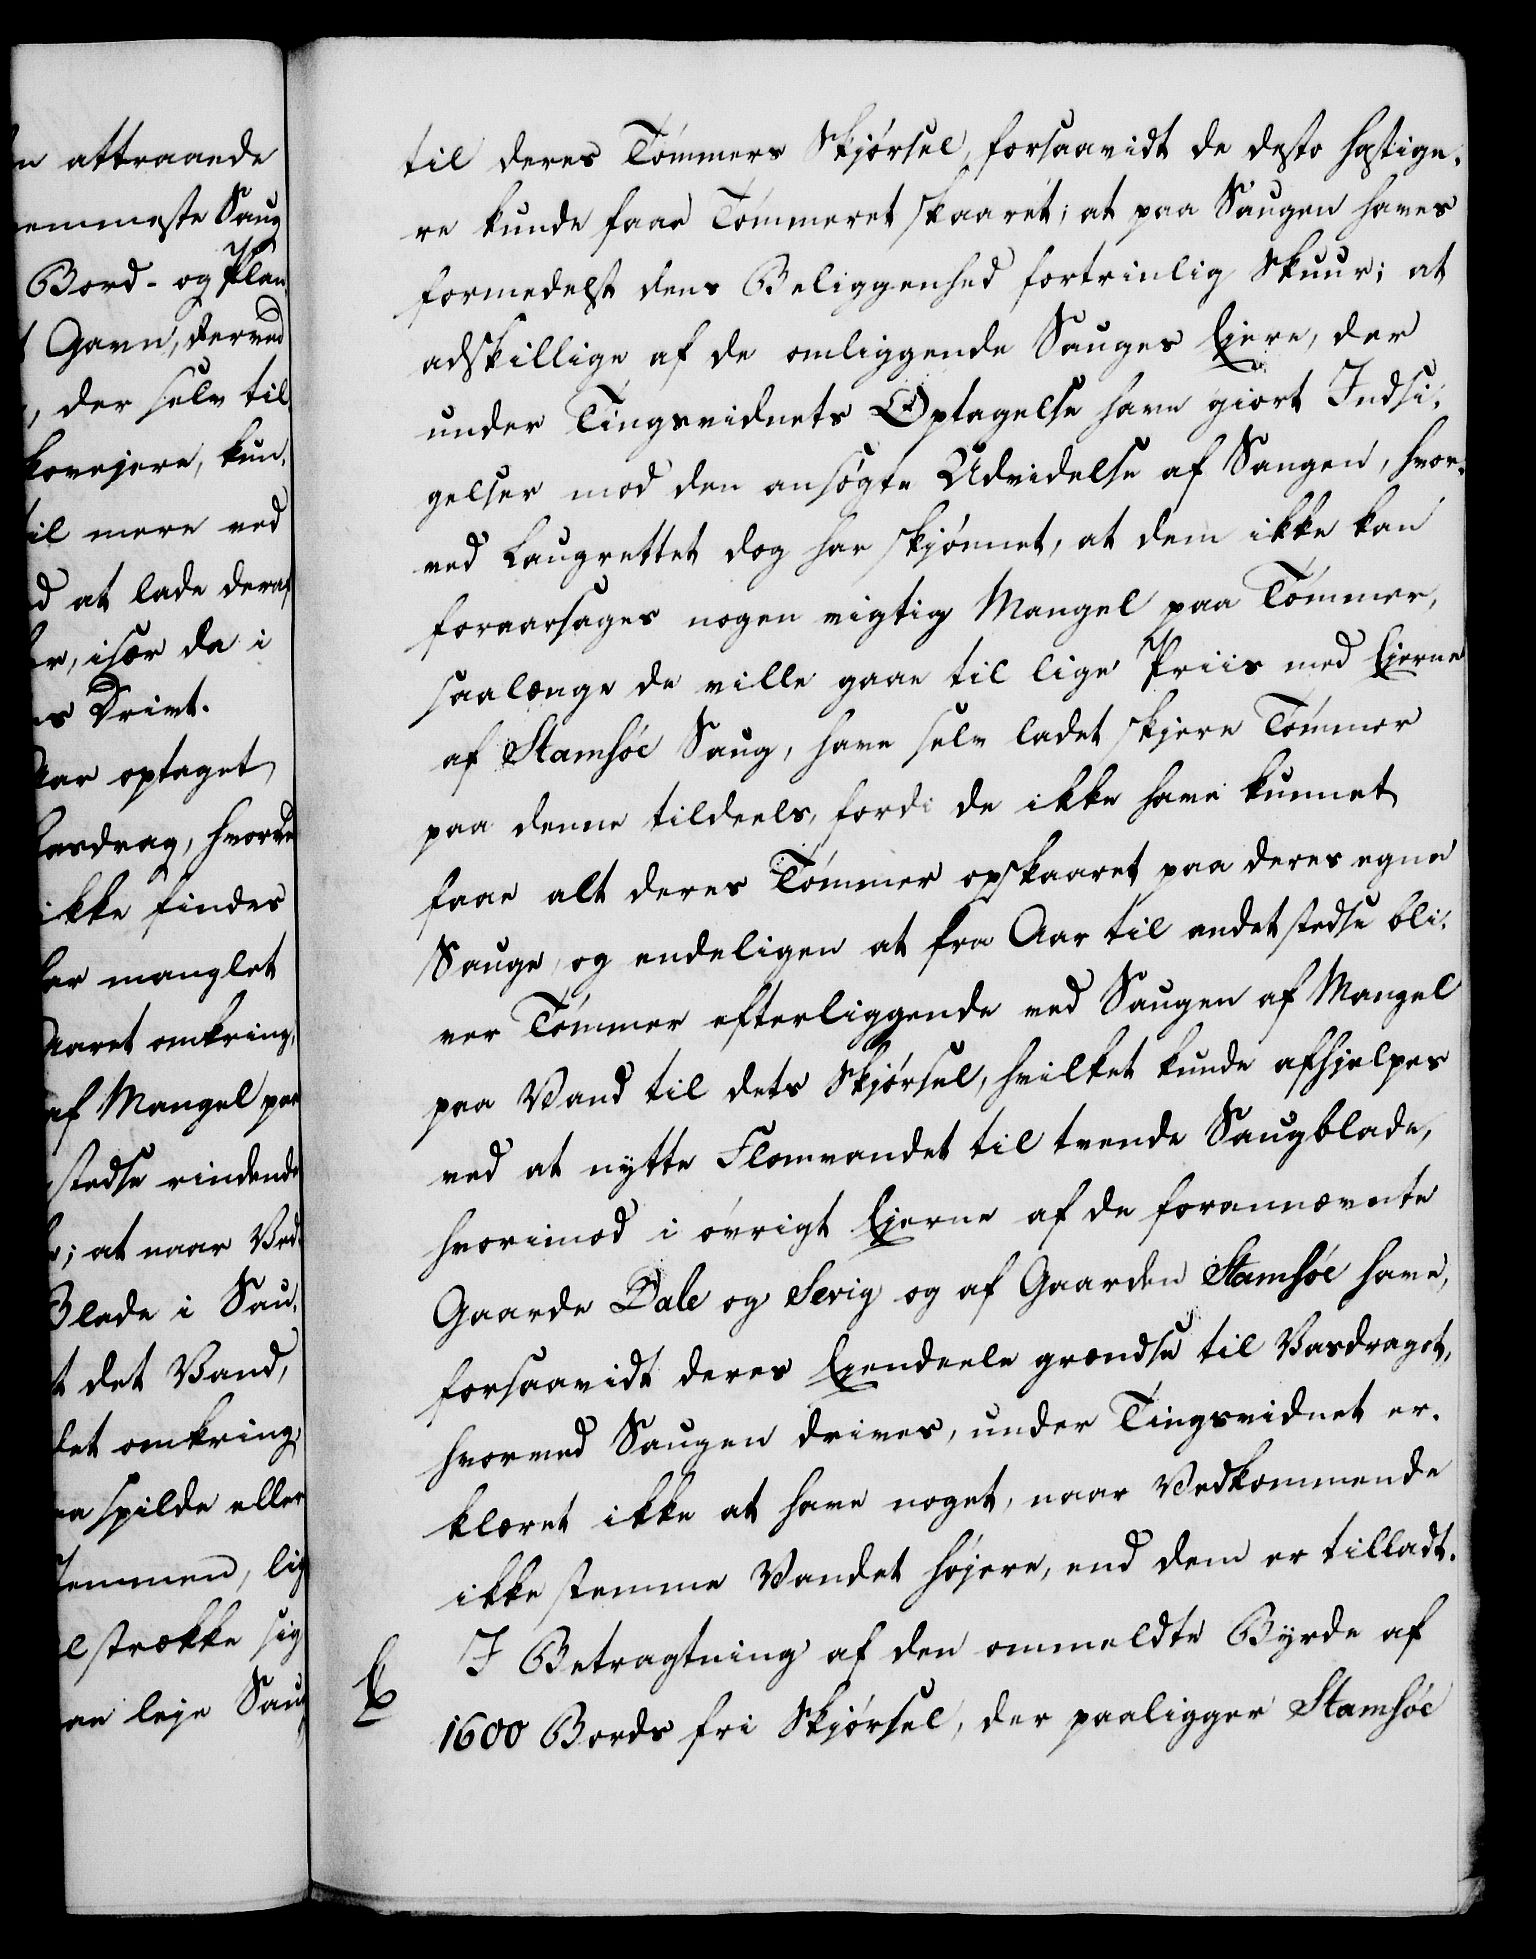 n attraande
emmeste Saug
Bord- og Plan,
t Gavn, derved
, der selv til
kovejere, kun,
til mere ved
d at lade deraf
er, især da i
es Drivt.
Aar optaget
asdrag, hvorved
ikke findes
har manglet
Aaret omkring,
af Mangel paa
stedse rindende
; at naar Ved-
Blade i Sau,
t det Vand,
det omkring,
na spilde eller
temmen, lig
el strække sig
an leje Saug
til deres Tømmers Skjørsel, forsaavidt de desto hastige,
re kunde faae Tømmeret skaaret; at paa Saugen haves
formedelst dens Beliggenhed fortrinlig Skuur; at
adskillige af de omliggende Sauges Ejere, der
under Tingsvidnets Optagelse have giort Indsi,
gelser mod den ansøgte Udvidelse af Saugen, hvor,
ved Laugrettet dog har skjønnet, at dem ikke kan
foraarsages nogen vigtig Mangel paa Tømmer,
saalænge de ville gaae til lige Priis med Ejerne
af Stamsøe Saug, have selv ladet skjere Tømmer
paa denne tildeels, fordi de ikke have kunnet
faae alt deres Tømmer opskaaret paa deres egne
Sauge, og endeligen at fra Aar til andet stedse bli,
ver Tømmer efterliggende ved Saugen af Mangel
paa Vand til dets Skjørsel, hvilket kunde afhjelpes
ved at nytte Flomvandet til tvende Saugblade,
hvorimod i øvrigt Ejerne af de forannævnte
Gaarde Dale og Sevig og af Gaarden Stamsøe have,
forsaavidt deres Ejendeele grændse til Vasdraget,
hvorved Saugen drives, under Tingsvidnet er,
klæret ikke at have noget, naar Vedkommende
ikke stemme Vandet højere, end dem er tilladt.
I Betragtning af den ommeldte Byrde af
1600 Bords fri Skjørsel, der paaligger Stamsøe